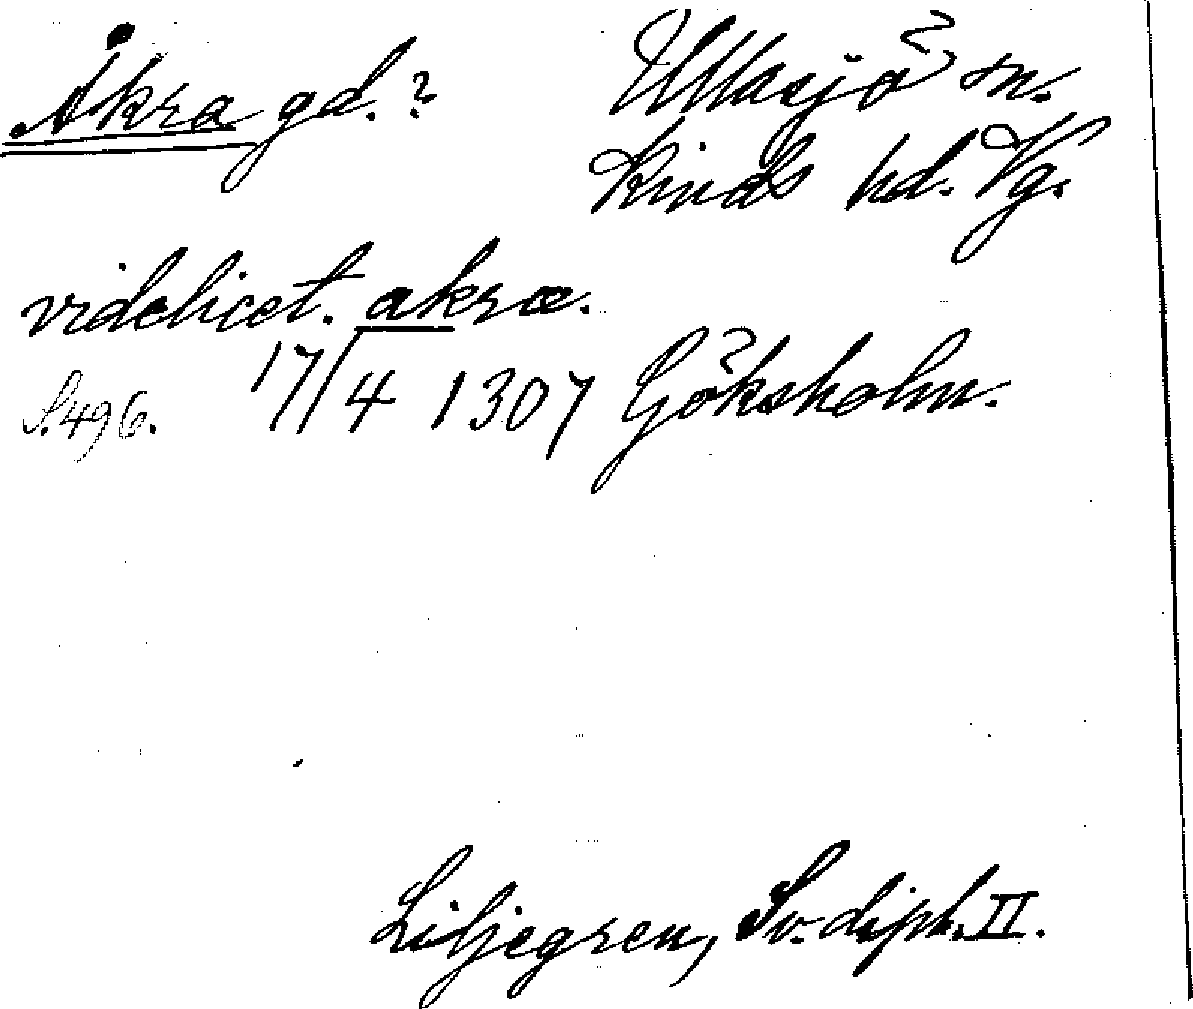 Åkra gd.?
Ullasjö sn.
Kinds hd. Vg.
videlicet. akræ.
S. 496. 17/4 1307 Göksholm.
Liljegren, Sv. dipl. II.